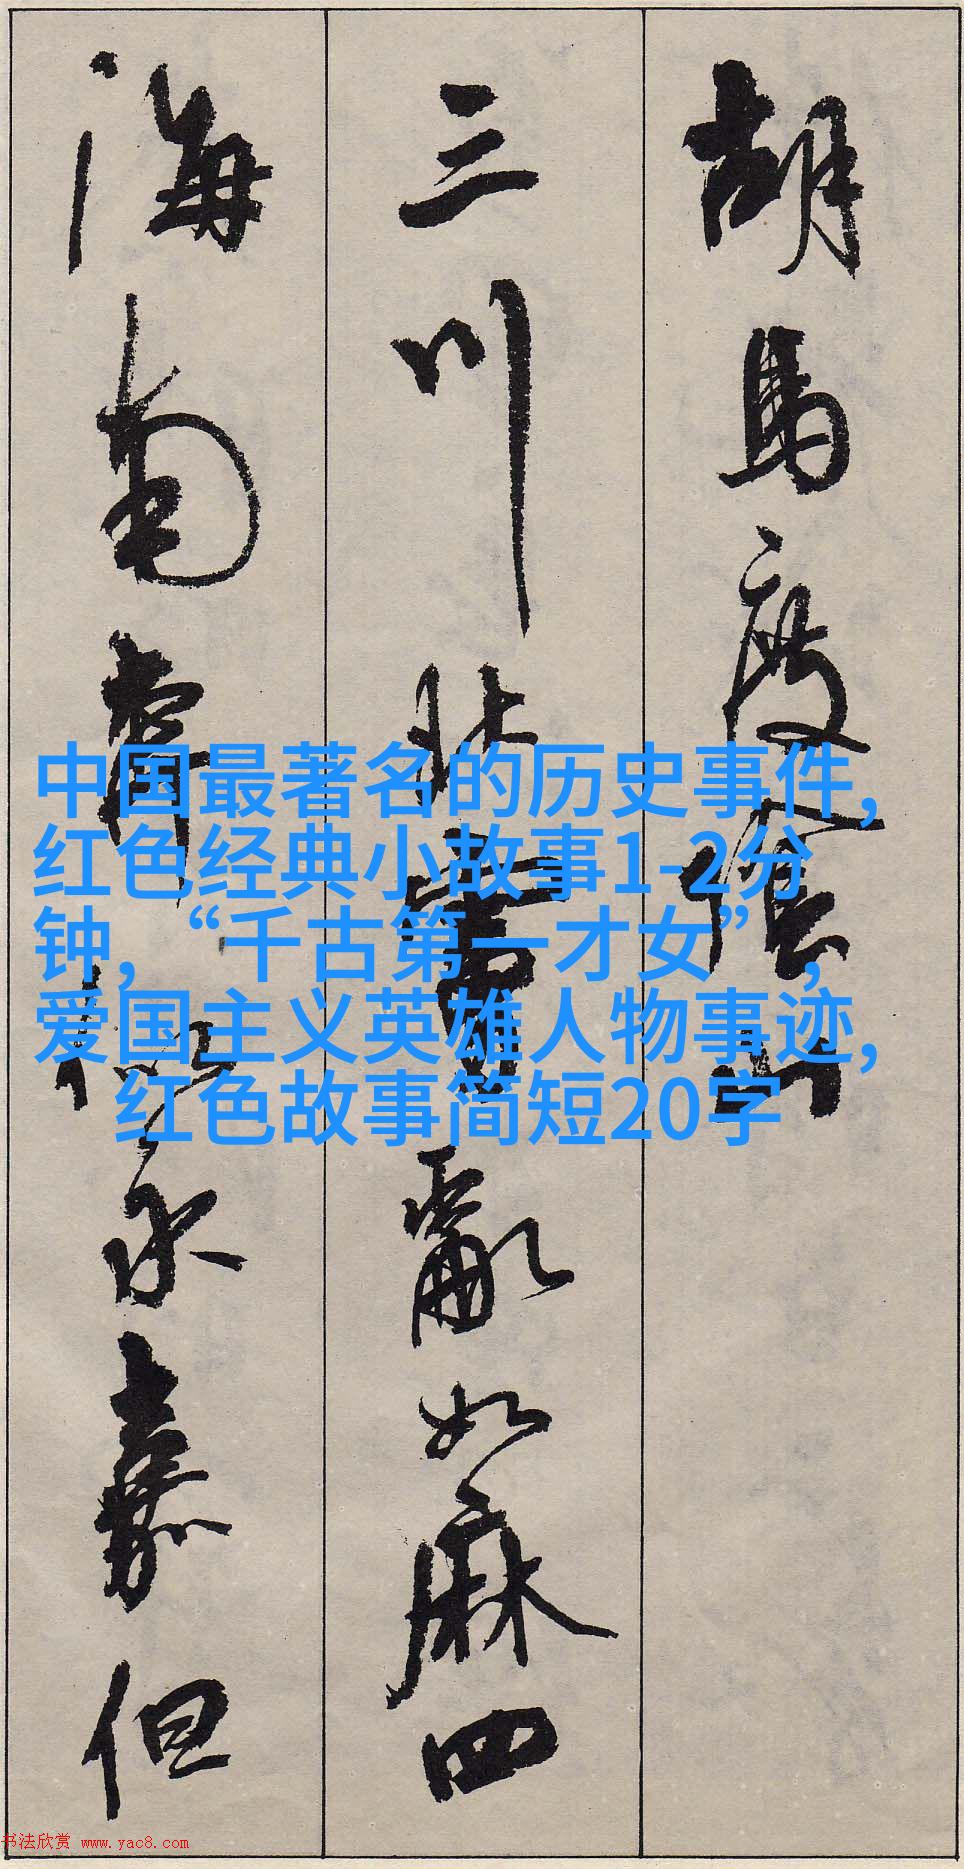 胡馬度陰山
三川北虜亂如麻四
海南奔似永嘉但
中国最著名的历史事件,
红色经典小故事1-2分
钟,“千古第一才女”,
爱国主义英雄人物事迹,
红色故事简短20字
书法欣赏 www.yac8.com